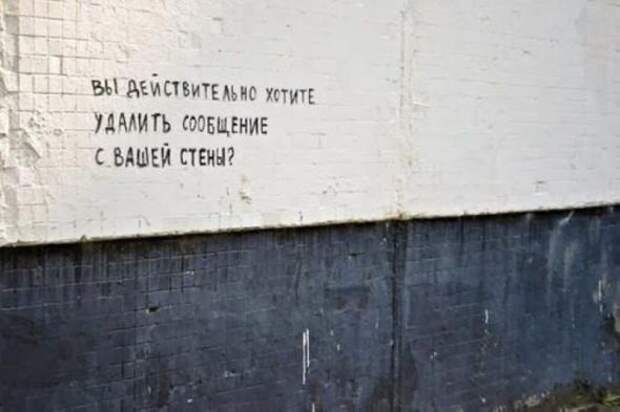 ВЫ ДЕЙСТВИТЕЛЬНО ХОТИТЕ
УДАЛИТЬ СООБЩЕНИЕ
С ВАШЕЙ СТЕНЫ?